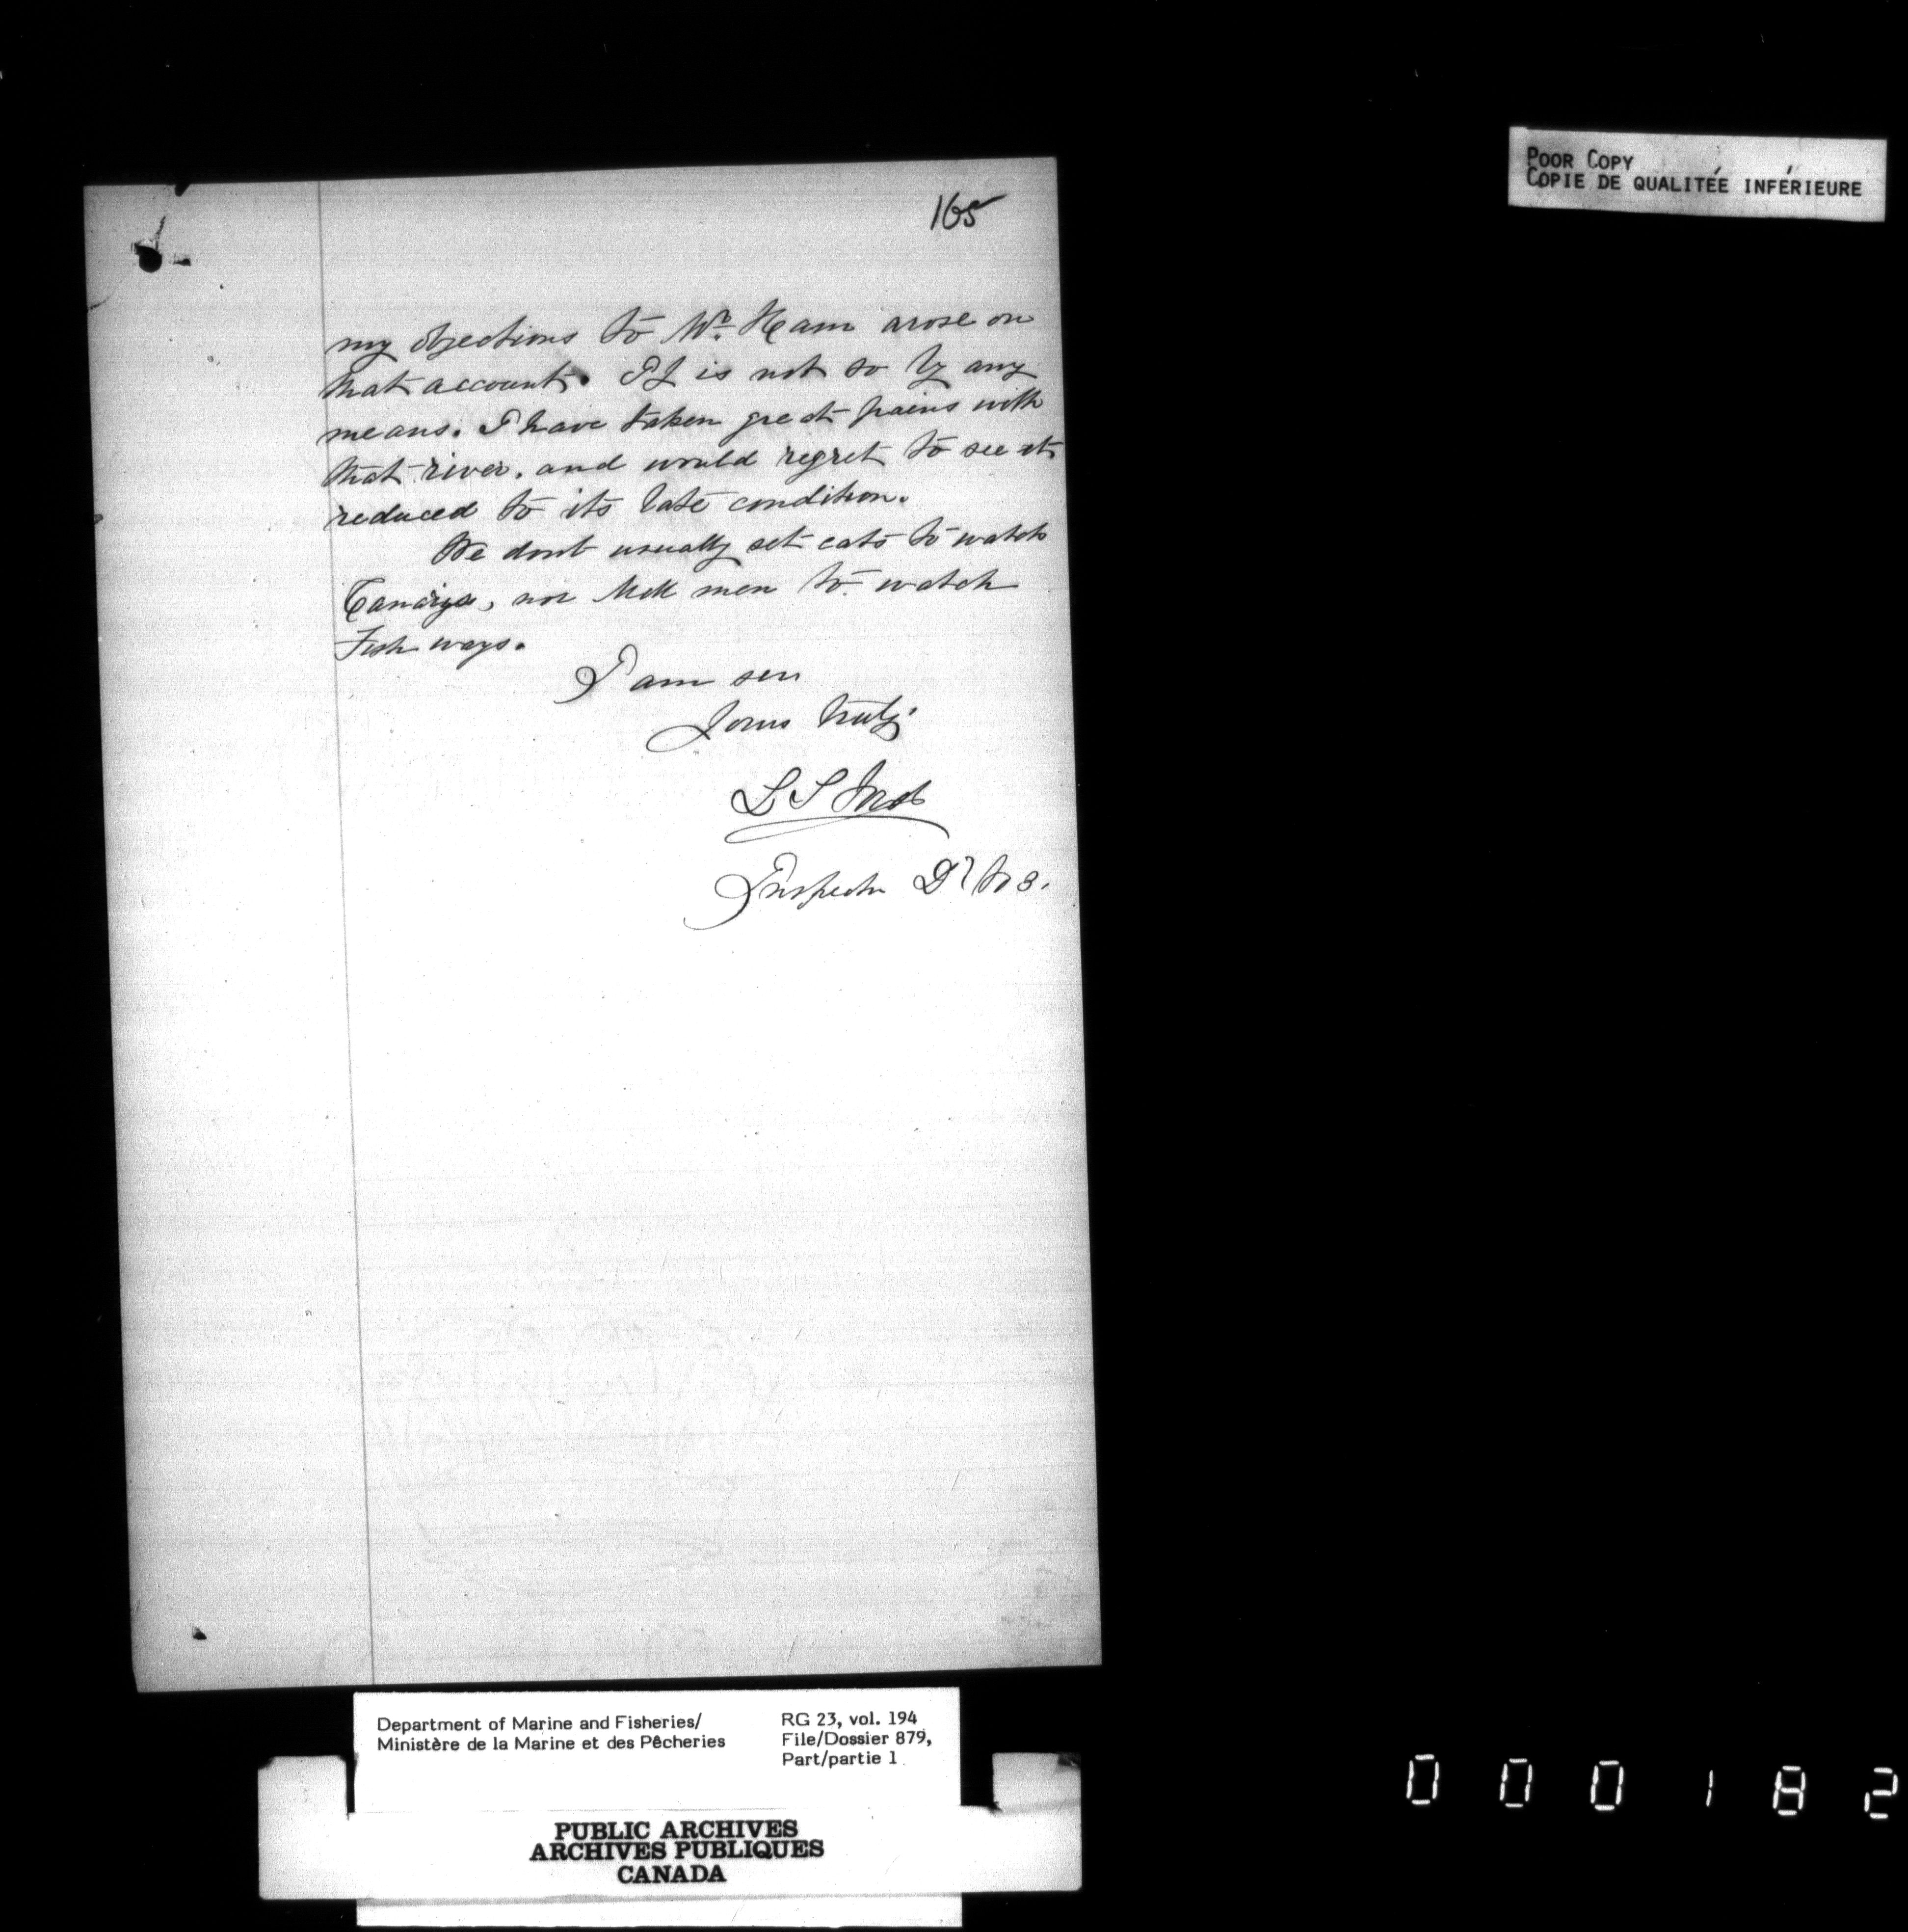 POOR COPY
COPIE DE QUALITÉE INFÉRIEURE
165
my objections to Mr. Ham arose on
that account. It is not so by any
means. I have taken great pains with
that river. and would regret to see it
reduced to its late condition.
We dont usually set cats to watch
Canarys, nor Mill men to watch
Fish ways.
I am sir
Yours truly
L S Ford
Inspector Dt No 3.
Department of Marine and Fisheries/
Ministère de la Marine et des Pêcheries
RG 23, vol. 194
File/Dossier 879,
Part/partie 1
PUBLIC ARCHIVES
ARCHIVES PUBLIQUES
CANADA
000182